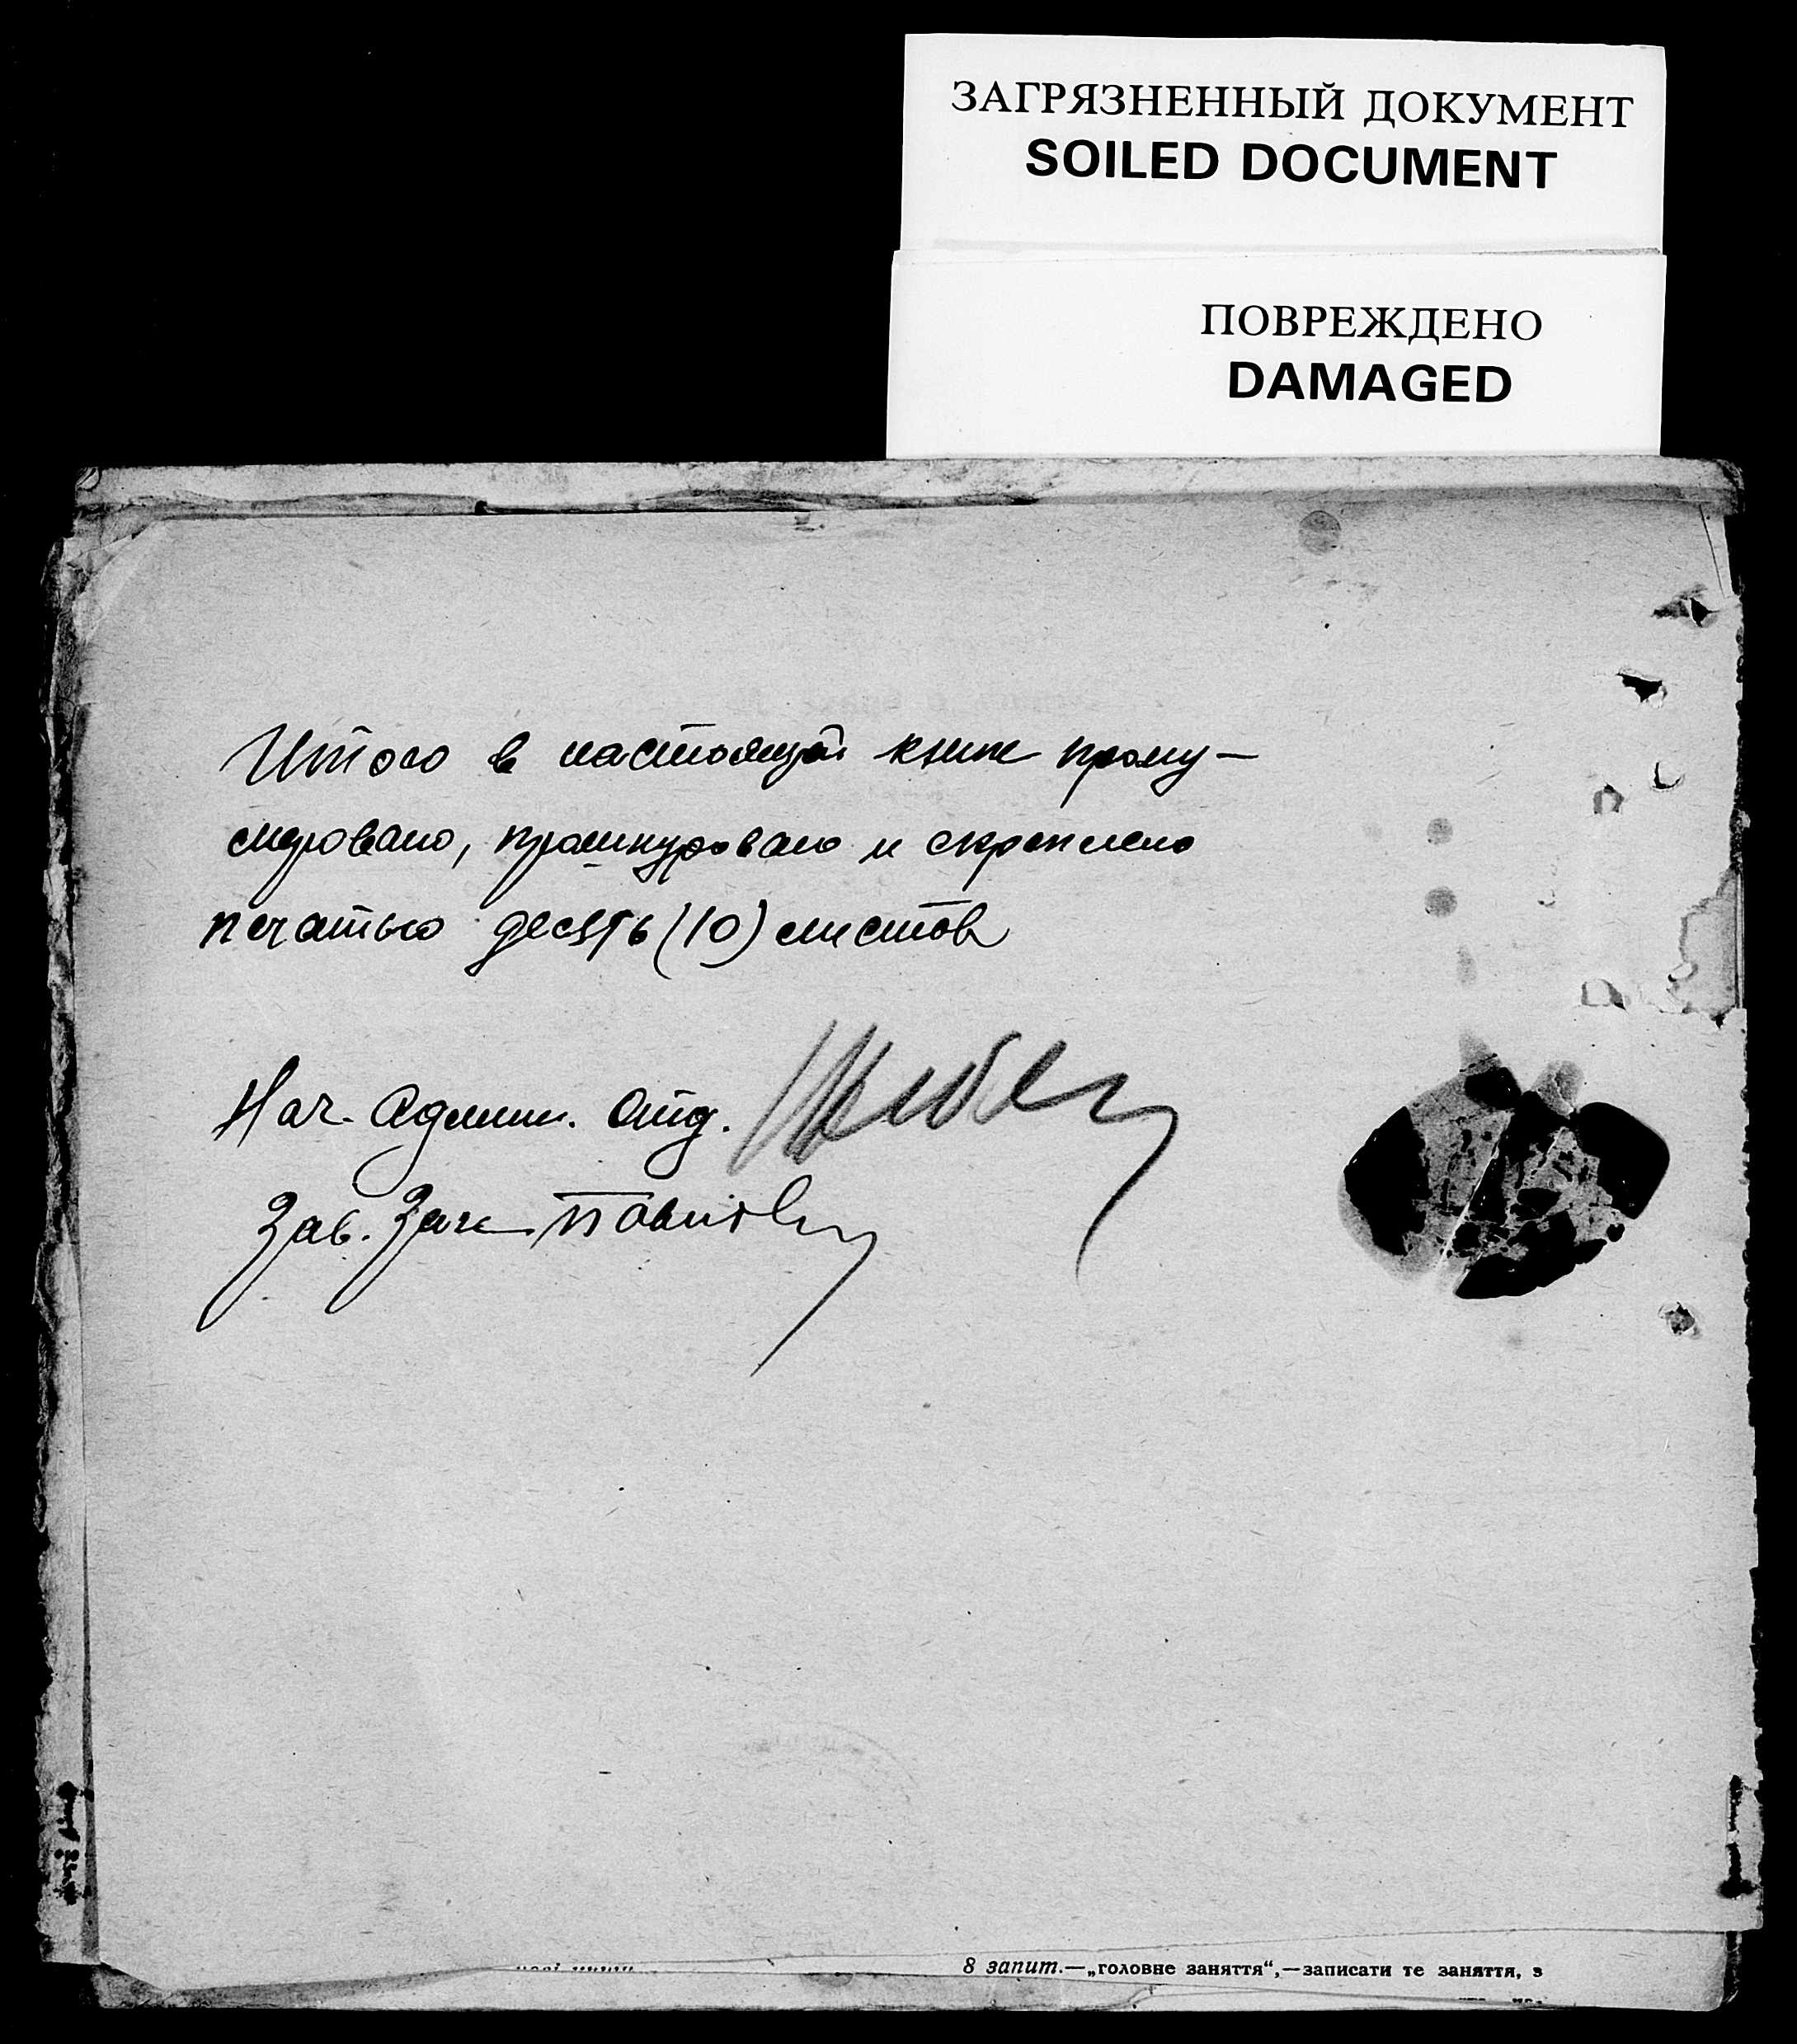 ЗАГРЯЗНЕННЫЙ ДОКУМЕНТ
SOILED DOCUMENT
ПОВРЕЖДЕНО
DAMAGED
Итого в настоящей книге прону-
меровано, прошнуровано и скреплено
печатью десять (10) листов
Нач. Админ. Отд.
Зав. Загс
8 запит.—„головне заняття“,—записати те заняття, з